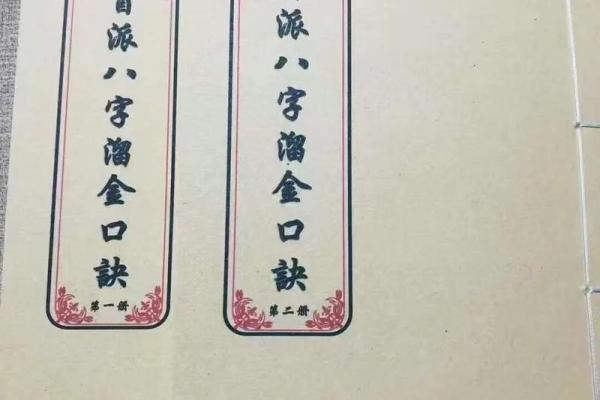 派八字溜金口訣
第一册
派八字溜金口訣
第二册